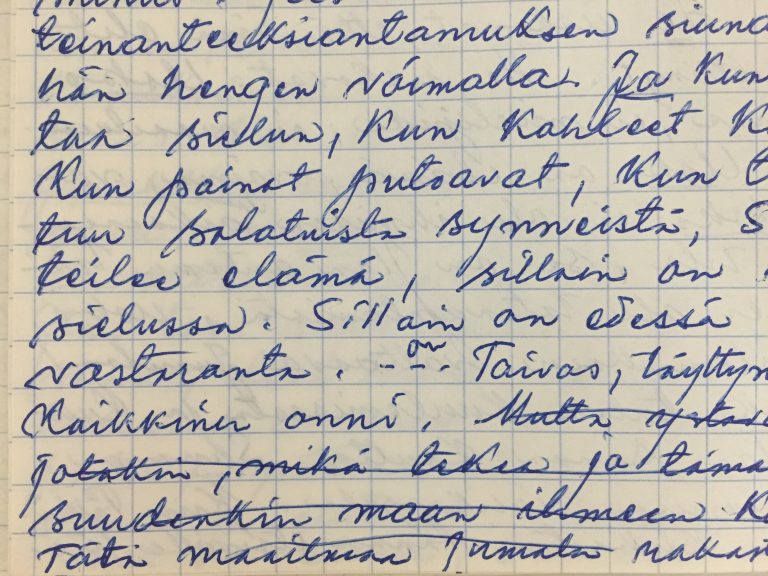 teinanteeksiantamuksen siuna
hän hengen voimalla. Ja kun
taa sielun, kun kahleet k
kun painot putoavat, kun t
tuu salatuista synneistä, s
teilee elämä, silloin on
sielussa. Silloin on edessä
vastaranta. -on-. Taivas, täytty
kaikkinen onni. Mutta ystävä
jotakin, mikä tekee ja tämä
suudenkin maan ihmeen k
Tätä maailmaa Jumala rakas